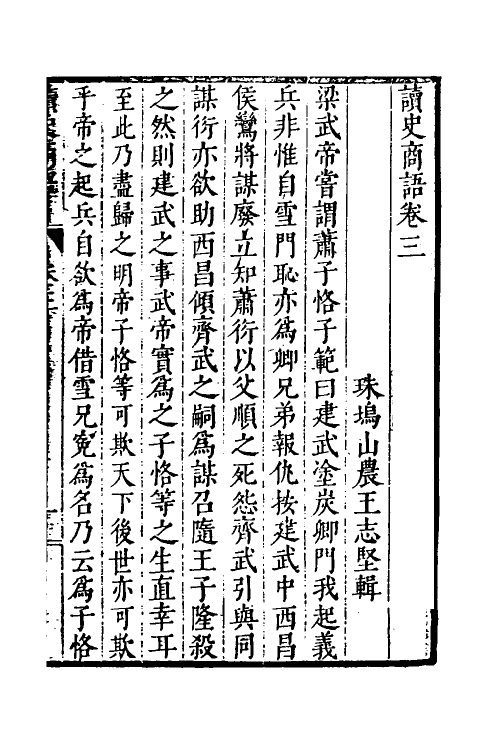 讀史商語卷三
珠塢山農王志堅輯
梁武帝嘗謂蕭子恪子範曰建武塗炭卿門我起義
兵非惟自雪門恥亦為卿兄弟報仇按建武中西昌
侯鸞將謀廢立知蕭衍以父順之死怨齊武引與同
謀衍亦欲助西昌傾齊武之嗣為謀召隨王子隆殺
之然則建武之事武帝實為之子恪等之生直幸耳
至此乃盡歸之明帝子恪等可欺天下後世亦可欺
乎帝之起兵自欲為帝借雪兄寃為名乃云為子恪